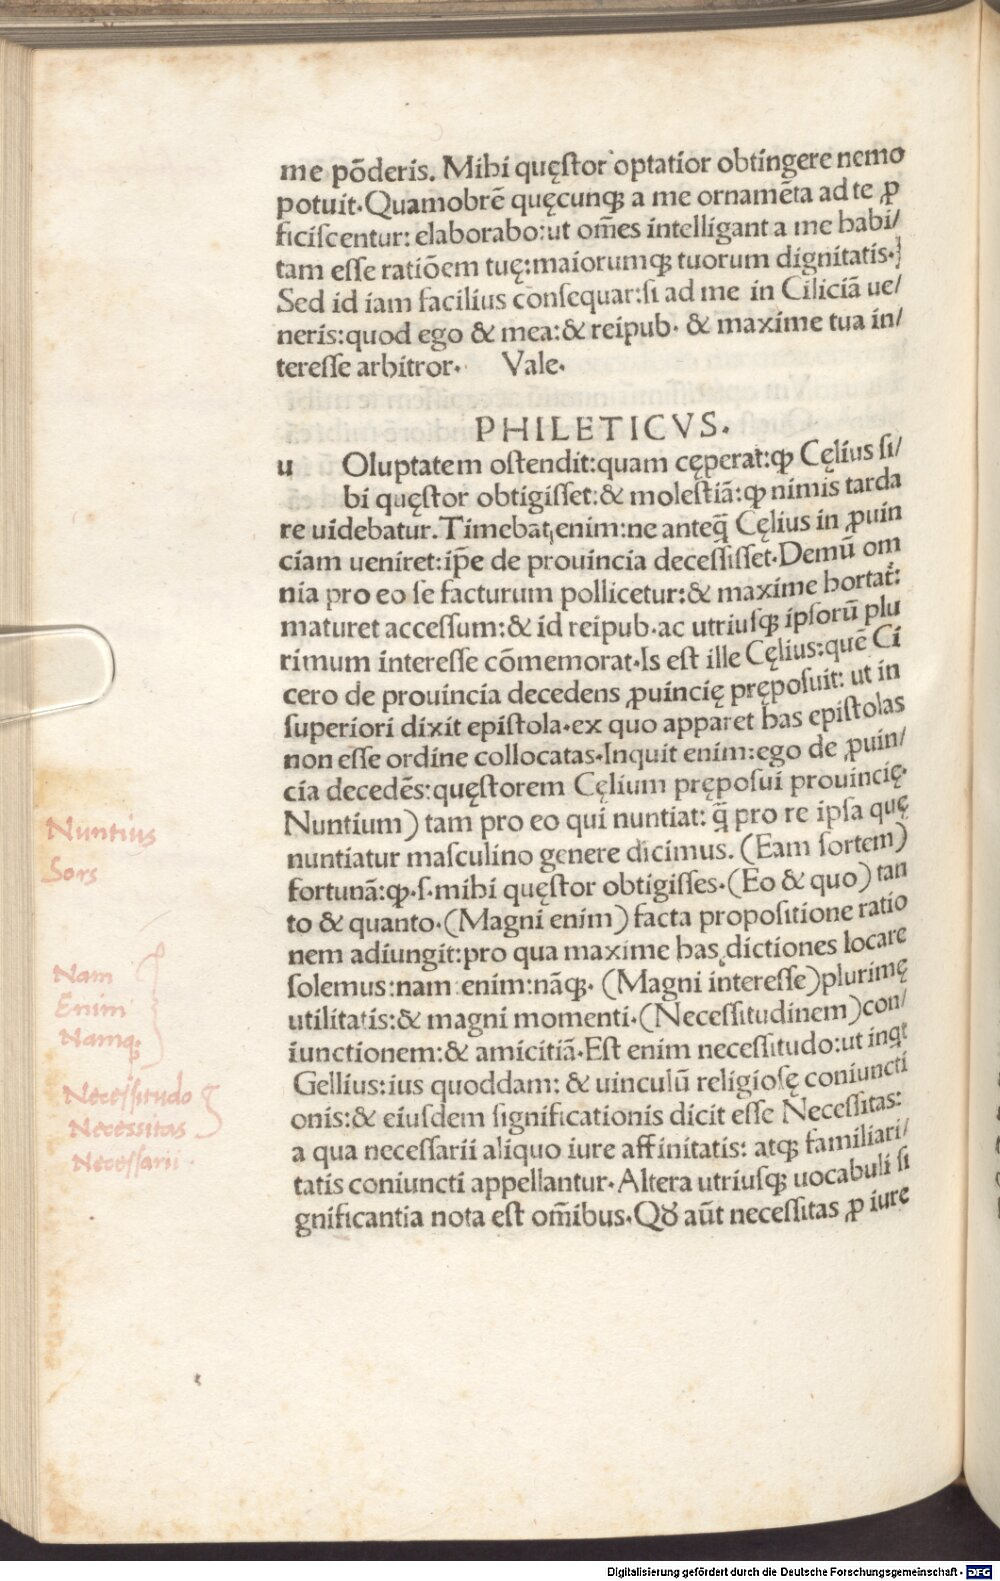 me põderis. Mihi quęstor optatior obtingere nemo
potuit. Quamobrẽ quęcunqꝫ a me ornamẽta ad te ꝓ
ficiſcentur: elaborabo: ut om̃es intelligant a me habi/
tam eſſe ratiõem tuę: maiorumqꝫ tuorum dignitatis.
Sed id iam facilius conſequar: ſi ad me in Ciliciã ue/
neris: quod ego & mea: & reipub. & maxime tua in/
tereſſe arbitror. Vale.
PHILETICVS.
u Oluptatem oſtendit: quam cęperat: ꝙ Cęlius ſi/
bi quęſtor obtigiſſet: & moleſtiã: ꝙ nimis tarda
re uidebatur. Timebat enim: ne anteq̃ Cęlius in ꝓuin
ciam ueniret: ip̃e de prouincia deceſſiſſet. Demũ om
nia pro eo ſe facturum pollicetur: & maxime hortat̃:
maturet acceſſum: & id reipub. ac utriuſqꝫ ipſorũ plu
rimum intereſſe cõmemorat. Is eſt ille Cęlius: quẽ Ci
cero de prouincia decedens ꝓuincię prępoſuit: ut in
ſuperiori dixit epiſtola. ex quo apparet has epiſtolas
non eſſe ordine collocatas. Inquit enim: ego de ꝓuin/
cia decedẽs: quęſtorem Cęlium prępoſui prouincię.
Nuntium) tam pro eo qui nuntiat: q̃ pro re ipſa quę
nuntiatur maſculino genere dicimus. (Eam ſortem)
fortunã: ꝙ. ſ. mihi quęſtor obtigiſſes. (Eo & quo) tan
to & quanto. (Magni enim) facta propoſitione ratio
nem adiungit: pro qua maxime has dictiones locare
ſolemus: nam enim: nãqꝫ. (Magni intereſſe) plurimę
utilitatis: & magni momenti. (Neceſſitudinem) con/
iunctionem: & amicitiã. Eſt enim neceſſitudo: ut inqt
Gellius: ius quoddam: & uinculũ religioſę coniuncti
onis: & eiuſdem ſignificationis dicit eſſe Neceſſitas:
a qua neceſſarii aliquo iure affinitatis: atqꝫ familiari/
tatis coniuncti appellantur. Altera utriuſqꝫ uocabuli ſi
gnificantia nota eſt om̃ibus. Qꝸ aũt neceſſitas ꝓ iure
Nuntius
Sors
Nam
Enim
Namqꝫ
Neceſſitudo
Necessitas
Neceſſarii
Digitalisierung gefördert durch die Deutsche Forschungsgemeinschaft - DFG